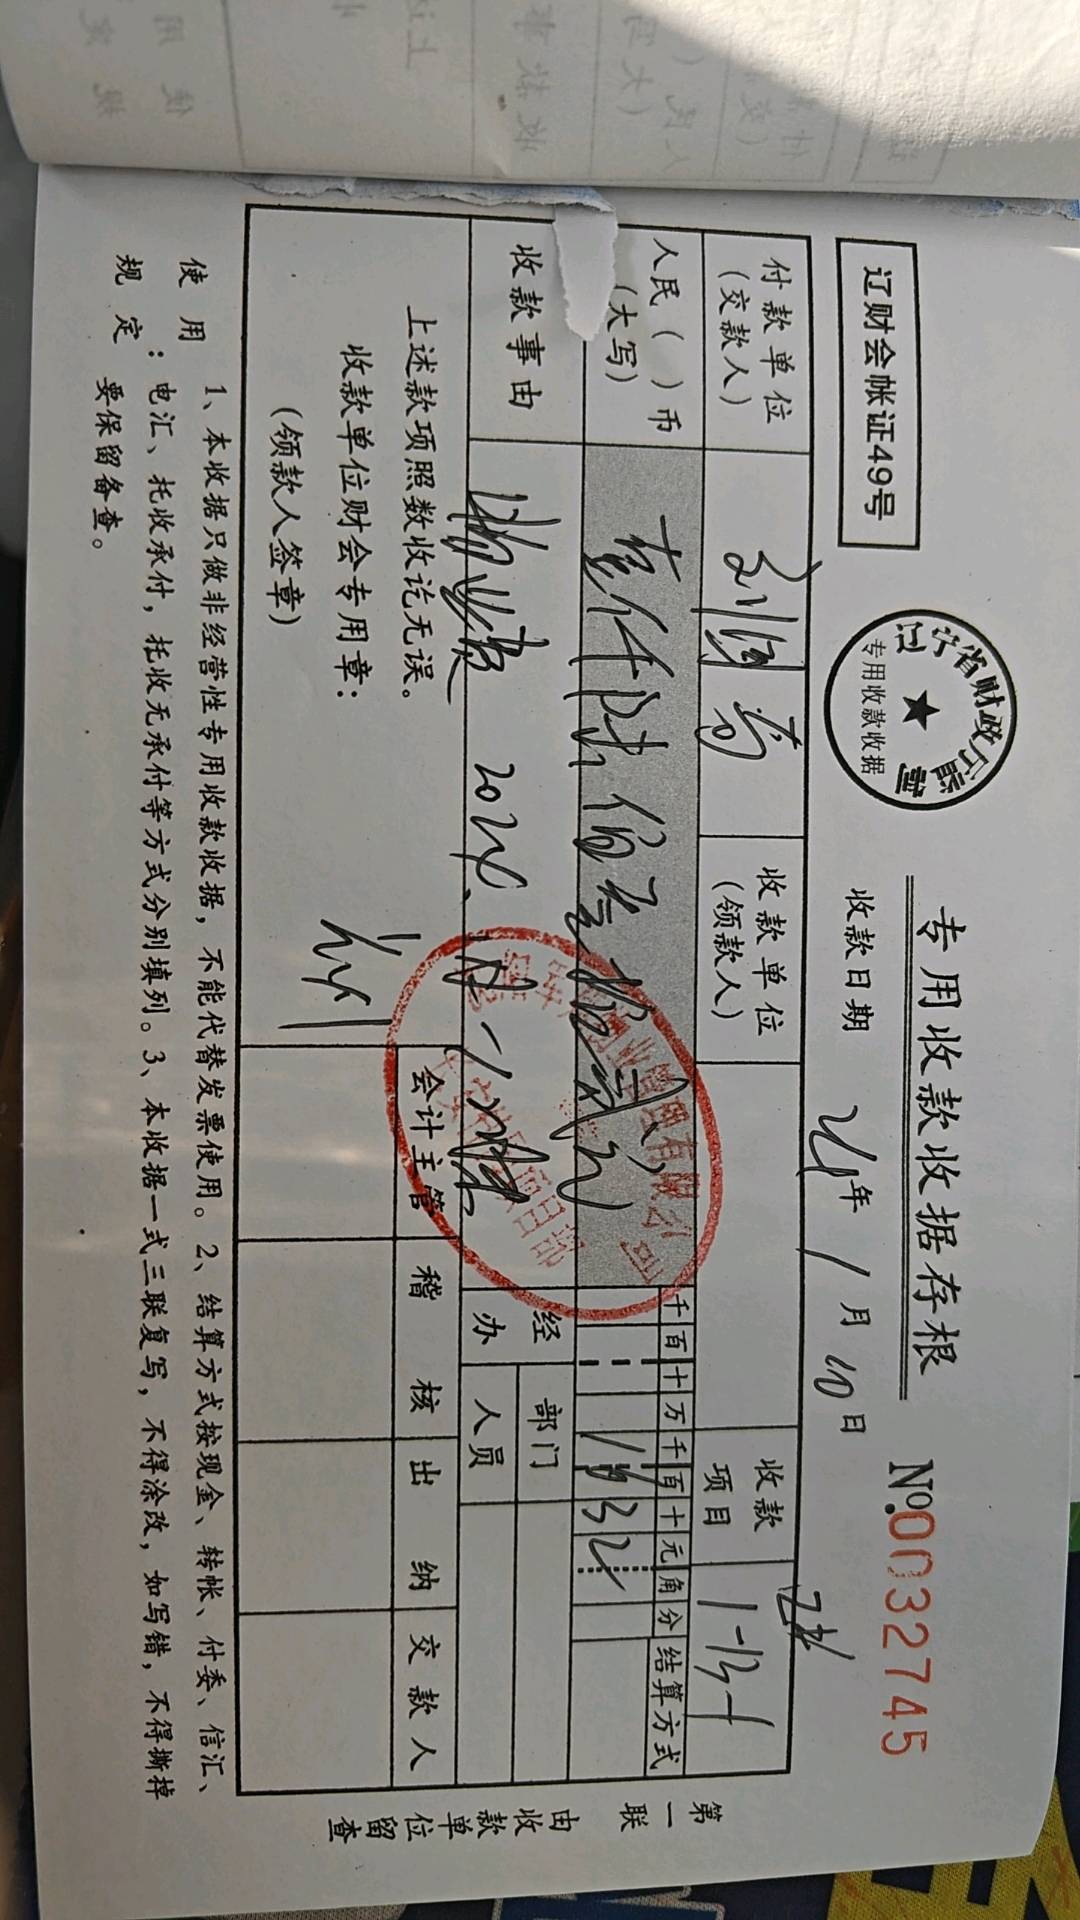 专用收款收据存根
辽财会帐证49号
辽宁省财政厅监制
专用收款收据
收款日期 24年1月10日
№0032745
付款单位
(交款人)
收款单位
(领款人)
收款
项目
1-13-1
人民( )币
(大写)
壹仟陆佰叁拾贰元
千百十万千百十元角分
1632
结算方式
收款事由
物业费 2024.
经办
部门
人员
上述款项照数收讫无误。
收款单位财会专用章：
(领款人签章)
会计主管
稽核
出纳
交款人
第一联 由收款单位留查
使用规定：
1、本收据只做非经营性专用收款收据，不能代替发票使用。2、结算方式按现金、转帐、付委、信汇、
电汇、托收承付，托收无承付等方式分别填列。3、本收据一式三联复写，不得涂改，如写错，不得撕掉
要保留备查。